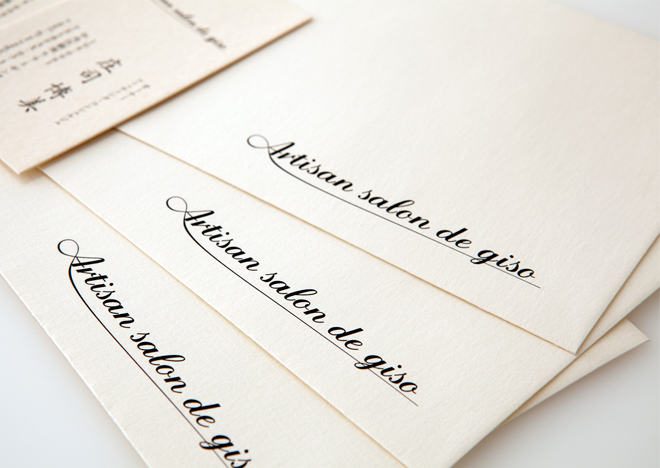 Artisan salon de giso
庄司 博美
Artisan salon de giso
Artisan salon de giso
Artisan salon de gis